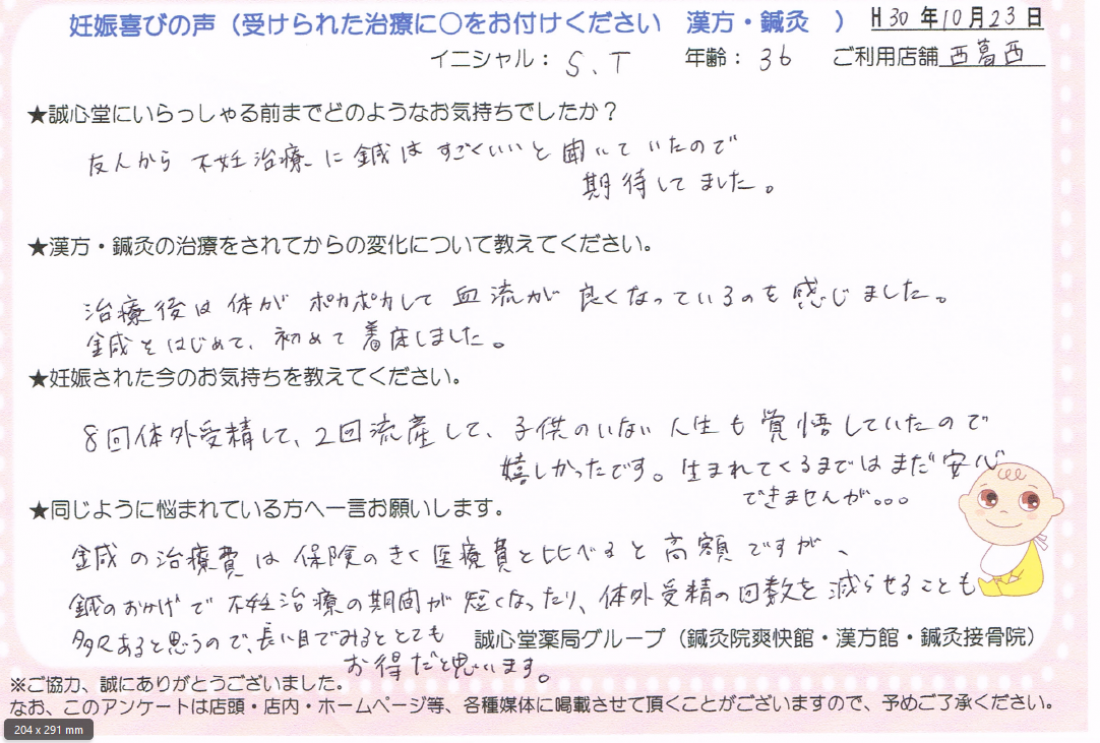 妊娠喜びの声（受けられた治療に○をお付けください　漢方・鍼灸　）　H30年10月23日
イニシャル：S.T　年齢：36　ご利用店舗 西葛西
★誠心堂にいらっしゃる前までどのようなお気持ちでしたか？
友人から不妊治療に鍼はすごくいいと聞いていたので
期待してました。
★漢方・鍼灸の治療をされてからの変化について教えてください。
治療後は体がポカポカして血流が良くなっているのを感じました。
鍼をはじめて、初めて着床しました。
★妊娠された今のお気持ちを教えてください。
8回体外受精して、2回流産して、子供のいない人生も覚悟していたので
嬉しかったです。生まれてくるまではまだ安心
できませんが。。。
★同じように悩まれている方へ一言お願いします。
鍼の治療費は保険のきく医療費と比べると高額ですが、
鍼のおかげで不妊治療の期間が短くなったり、体外受精の回数を減らせることも
多々あると思うので、長い目でみるととても
お得だと思います。
誠心堂薬局グループ（鍼灸院爽快館・漢方館・鍼灸接骨院）
※ご協力、誠にありがとうございました。
なお、このアンケートは店頭・店内・ホームページ等、各種媒体に掲載させて頂くことがございますので、予めご了承ください。
204 x 291 mm